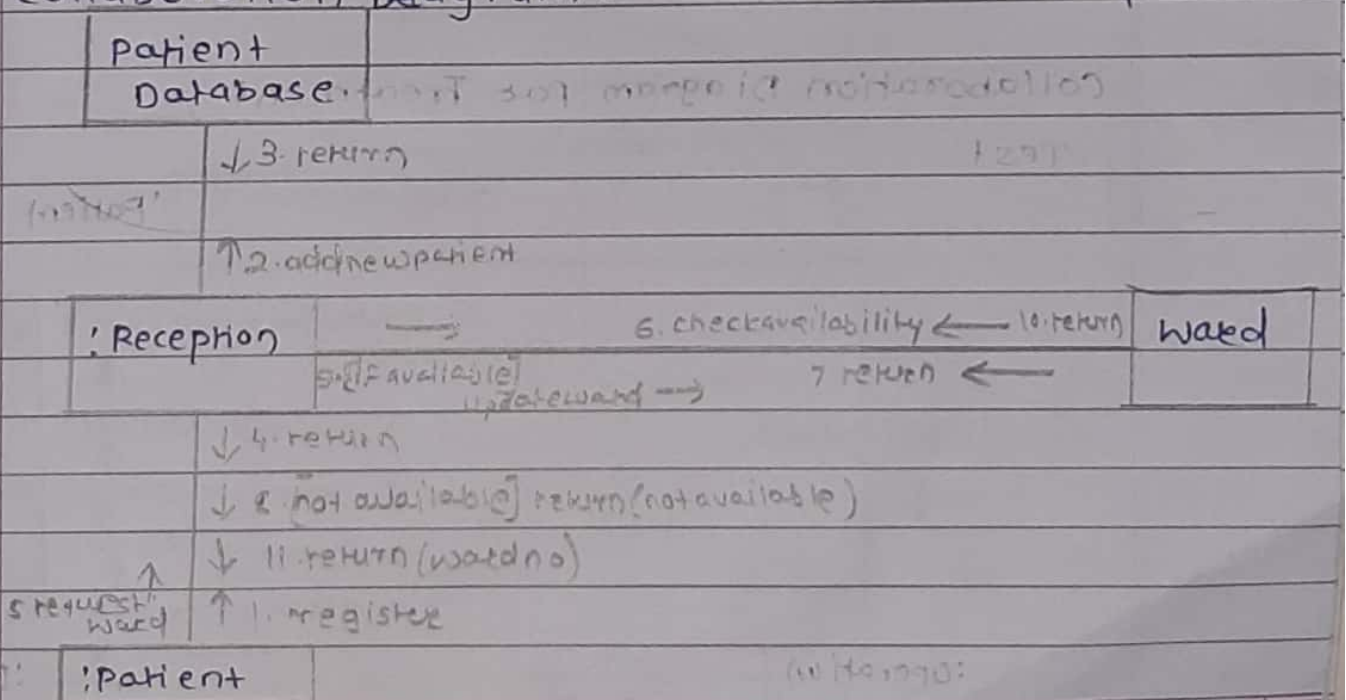 Patient
Database
↓ 3. return
↑ 2. addnewpatient
: Reception → 6. checkavailability ← 10. return Ward
9. [if available] 7 return ←
updateward →
↓ 4. return
↓ 8 [not available] return (not available)
↓ 11. return (wardno)
5 request ward ↑
↑ 1. register
: Patient